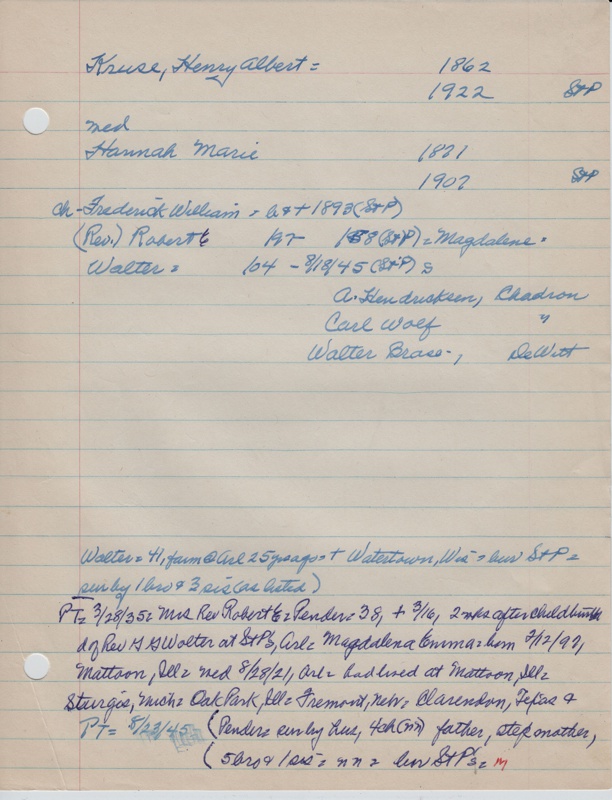 Kruse, Henry Albert = 1862
1922 St P
med
Hannah Marie 1871
1907 St P
ch - Frederick William = b & + 1893 (St P)
(Rev.) Robert E 197 158 (St P) = Magdalene =
Walter = 104 - 8/18/45 (St P) s
A. Hendricksen, Chadron
Carl Wolf "
Walter Brase -, DeWitt
Walter = 41, farm @ Arl 25 yrs ago = + Watertown, Wis = bur St P =
sur by 1 bro & 3 sis (as listed)
PT = 3/28/35 = Mrs Rev Robert E = Pender = 38, + 3/16, 2 wks after childbirth
d of Rev G G Wolter at St P's, Arl = Magdalena Emma = born 2/12/97,
Mattoon, Ill = med 8/28/21, Arl = had lived at Mattoon, Ill =
Sturgis, Mich = Oak Park, Ill = Fremont, Neb = Clarendon, Texas &
PT = 8/23/45 (Pender = sur by hus, 4 ch (nn) father, step mother,
(5 bro & 1 sis = nn = bur St P's = M